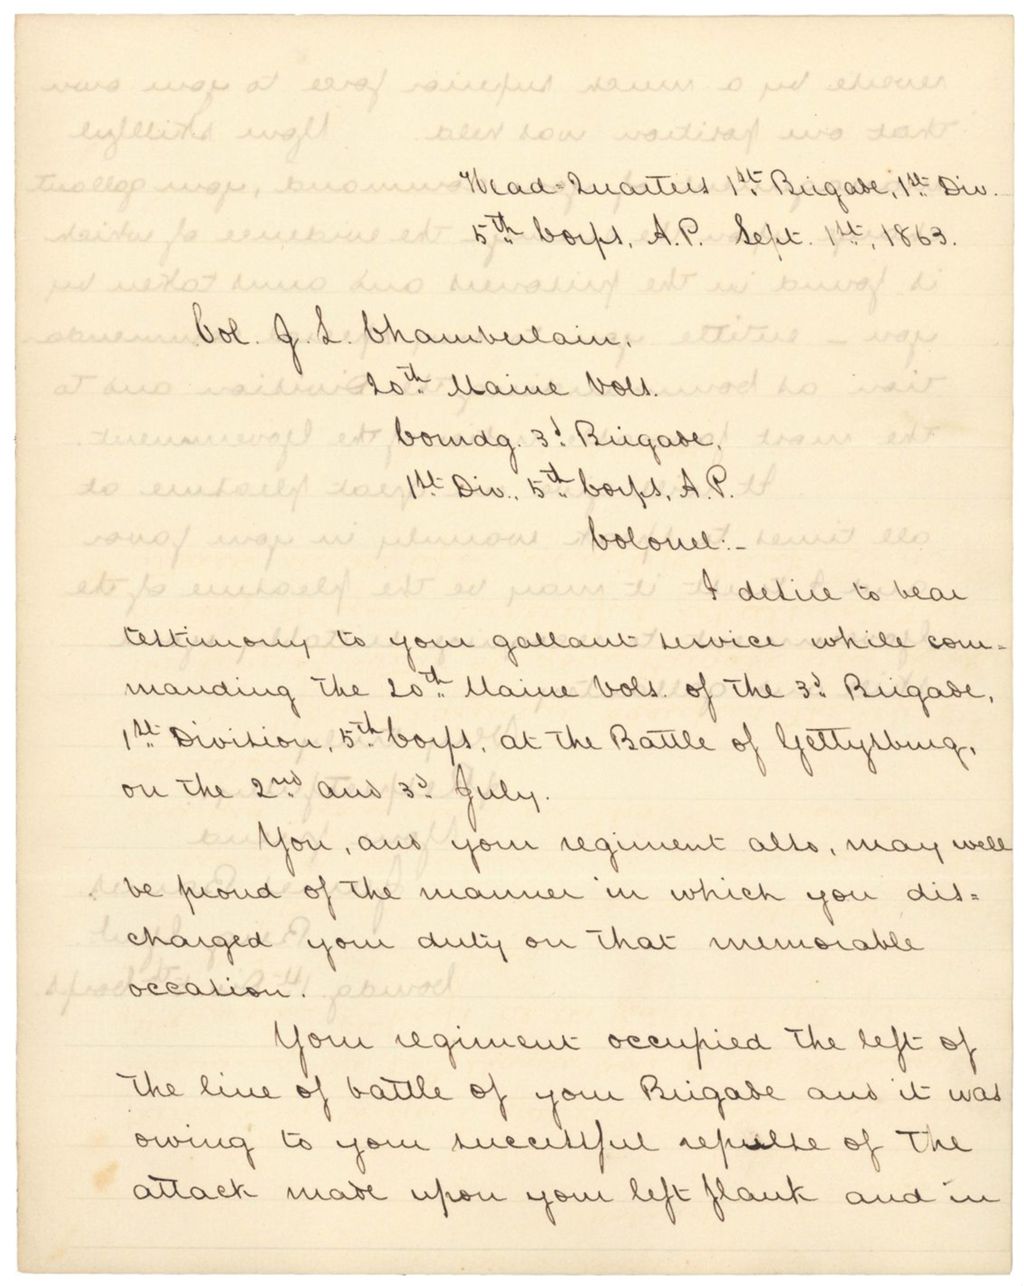 Head=Quarters 1st Brigade, 1st Div.
5th Corps, A.P. Sept. 1st, 1863.
Col. J. L. Chamberlain,
20th Maine Vols.
Comdg. 3d Brigade,
1st Div., 5th Corps, A.P.
Colonel:-
I desire to bear
testimony to your gallant service while com=
manding the 20th Maine Vols. of the 3d Brigade,
1st Division, 5th Corps, at the Battle of Gettysburg,
on the 2nd and 3d July.
You, and your regiment also, may well
be proud of the manner in which you dis=
charged your duty on that memorable
occasion.
Your regiment occupied the left of
the line of battle of your Brigade and it was
owing to your successful repulse of the
attack made upon your left flank and in